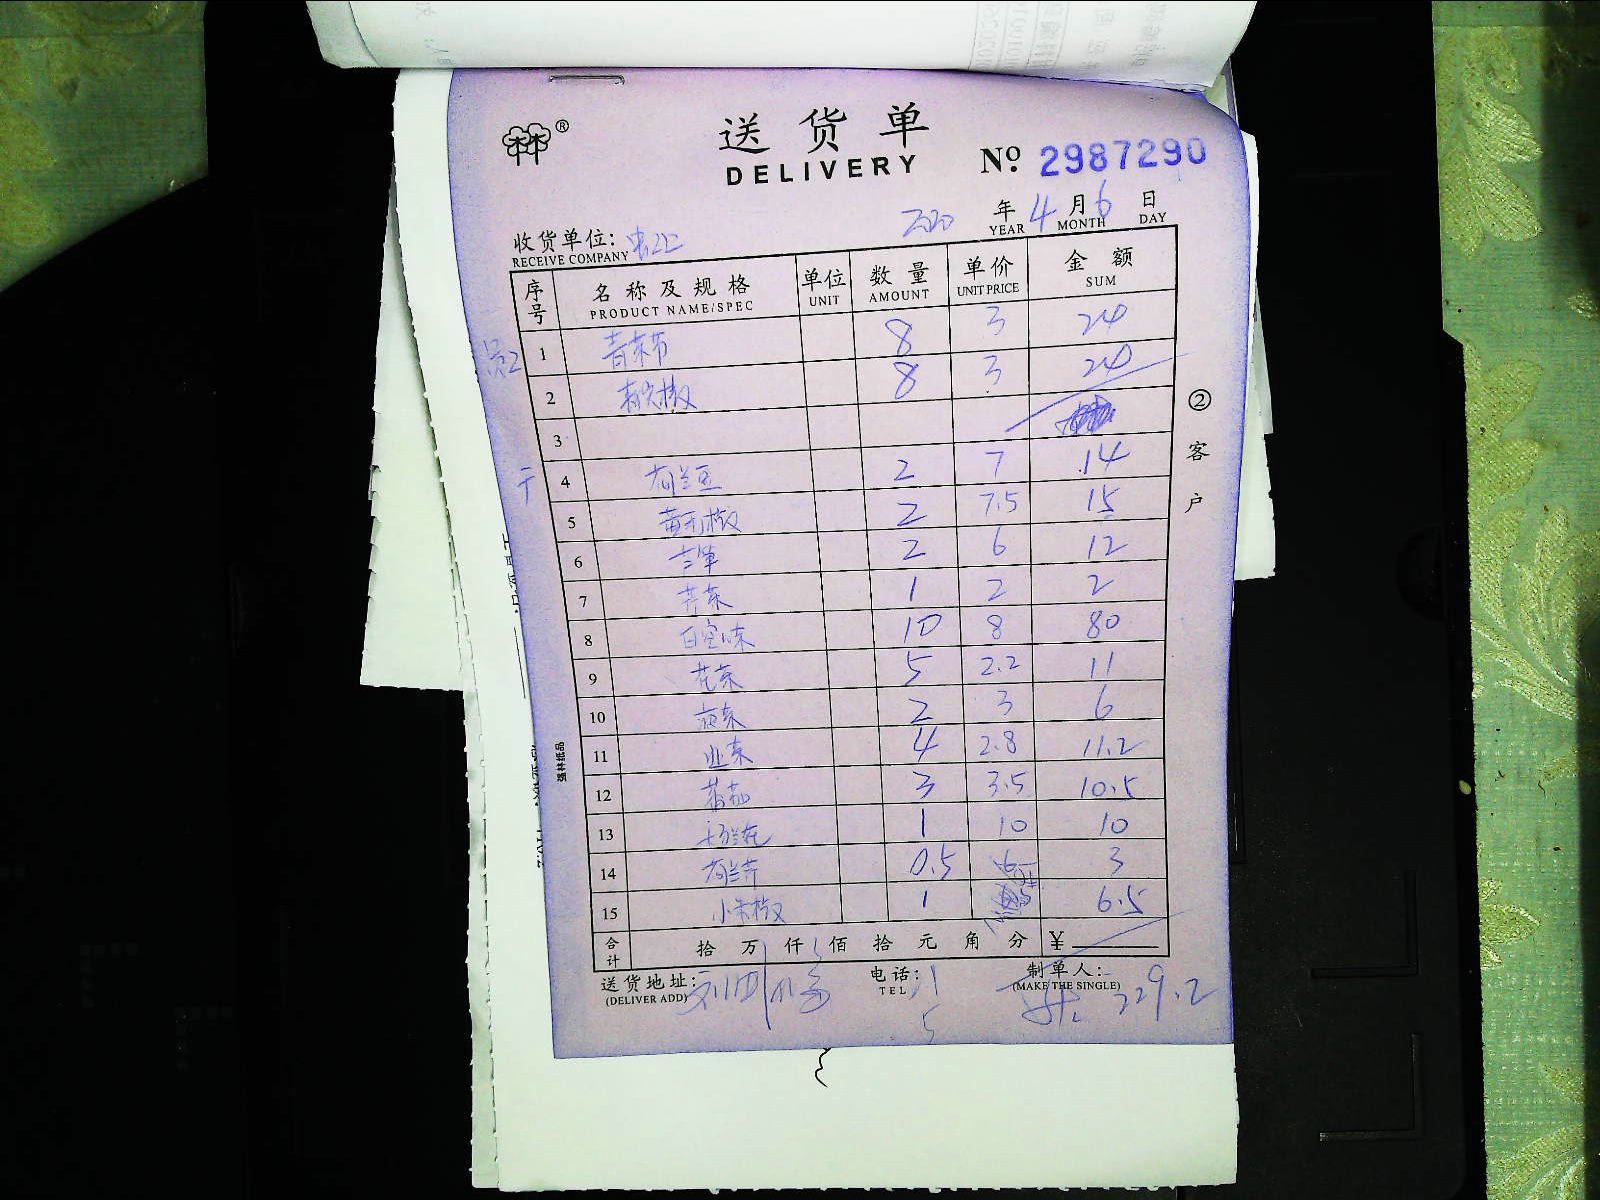 ®
送货单
DELIVERY
№ 2987290
2020 年 4 月 6 日
YEAR MONTH DAY
收货单位:
RECEIVE COMPANY
序号 名称及规格 单位 数量 单价 金额
PRODUCT NAME/SPEC UNIT AMOUNT UNIT PRICE SUM
员工 1 青菜节 8 3 24
2 8 3 24
3
干 4 荷兰豆 2 7 14
5 2 7.5 15
6 2 6 12
7 芹菜 1 2 2
8 10 8 80
9 花菜 5 2.2 11
10 2 3 6
11 韭菜 4 2.8 11.2
12 蕃茄 3 3.5 10.5
13 1 10 10
14 荷兰芹 0.5 6 3
15 小米椒 1 6.5
合计 拾 万 仟 佰 拾 元 角 分 ¥
送货地址:
(DELIVER ADD)
电话:
TEL
制单人:
(MAKE THE SINGLE)
229.2
② 客户
强林纸品